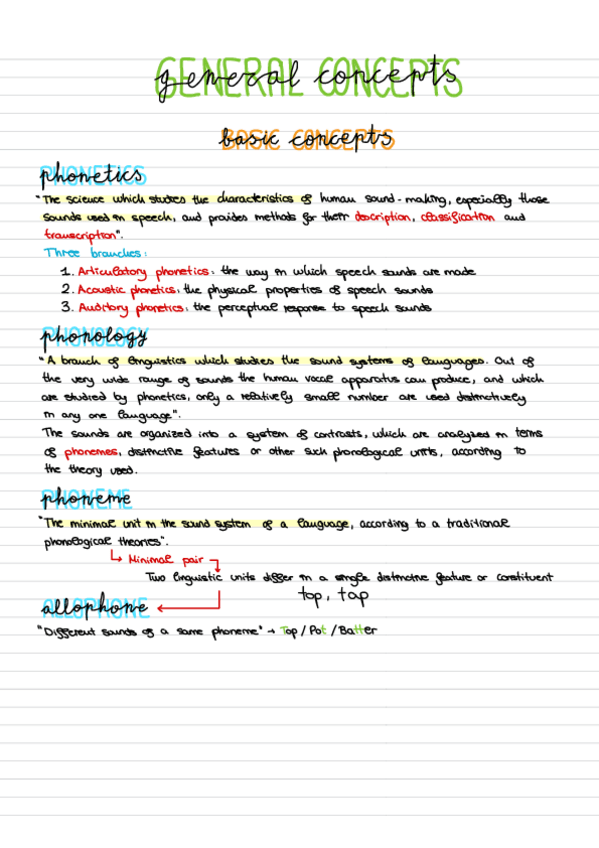 general concepts
basic concepts
phonetics
"The science which studies the characteristics of human sound-making, especially those
sounds used in speech, and provides methods for their description, classification and
transcription".
Three branches:
1. Articulatory phonetics: the way in which speech sounds are made
2. Acoustic phonetics: the physical properties of speech sounds
3. Auditory phonetics: the perceptual response to speech sounds
phonology
"A branch of linguistics which studies the sound systems of languages. Out of
the very wide range of sounds the human vocal apparatus can produce, and which
are studied by phonetics, only a relatively small number are used distinctively
in any one language".
The sounds are organized into a system of contrasts, which are analyzed in terms
of phonemes, distinctive features or other such phonological units, according to
the theory used.
phoneme
"The minimal unit in the sound system of a language, according to a traditional
phonological theories".
Minimal pair
Two linguistic units differ in a single distinctive feature or constituent
top, tap
allophone
"Different sounds of a same phoneme" → Top / Pot / Batter